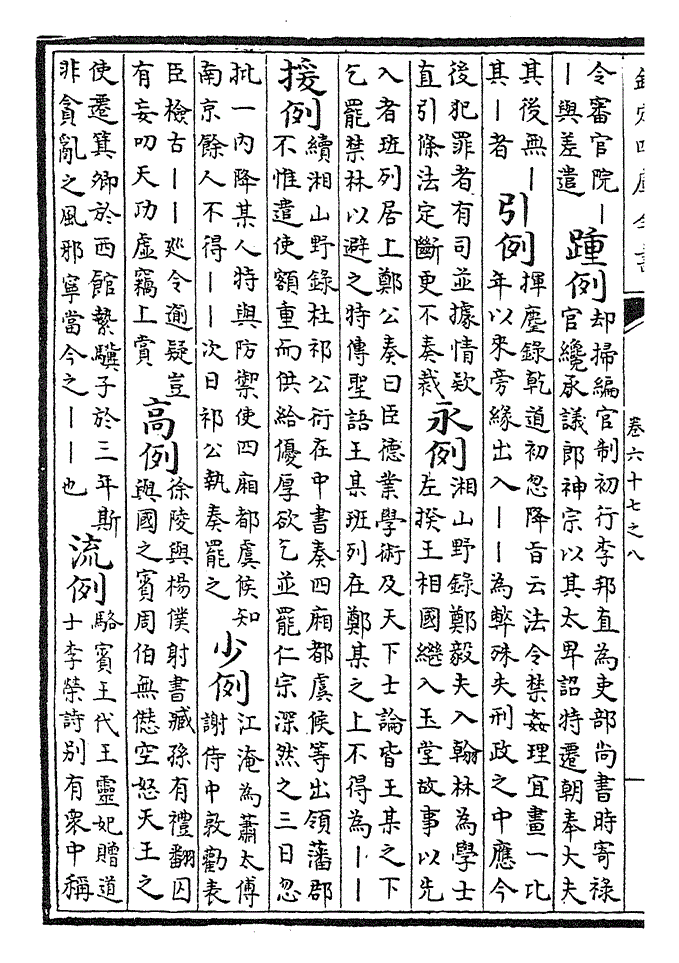 欽定四庫全書
卷六十七之八
令審官院丨
丨與差遣
踵例
却掃編官制初行李邦直為吏部尚書時寄祿
官纔承議郎神宗以其太卑詔特遷朝奉大夫
其後無丨
其丨者
引例
揮麈錄乾道初忽降旨云法令禁姦理宜畫一比
年以來旁緣出入丨丨為弊殊失刑政之中應今
後犯罪者有司並據情欵
直引條法定斷更不奏裁
永例
湘山野錄鄭毅夫入翰林為學士
左揆王相國繼入玉堂故事以先
入者班列居上鄭公奏曰臣德業學術及天下士論皆王某之下
乞罷禁林以避之特傳聖語王某班列在鄭某之上不得為丨丨
援例
續湘山野錄杜祁公衍在中書奏四廂都虞候等出領藩郡
不惟遣使額重而供給優厚欲乞並罷仁宗深然之三日忽
批一內降某人特與防禦使四廂都虞候知
南京餘人不得丨丨次日祁公執奏罷之
少例
江淹為蕭太傅
謝侍中敦勸表
臣檢古丨丨廵令逾疑豈
有妄叨天功虛竊上賞
高例
徐陵與楊僕射書臧孫有禮翻囚
與國之賓周伯無愆空怒天王之
使遷箕卿於西館縶驥子於三年斯
非貪亂之風邪寧當今之丨丨也
流例
駱賓王代王靈妃贈道
士李榮詩別有衆中稱